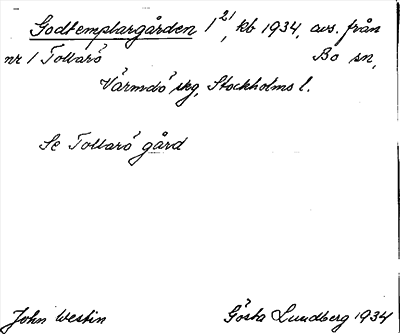 Godtemplargården 1²¹, kb 1934, avs. från
nr 1 Tollarö Bo sn,
Värmdö skg, Stockholms l.
Se Tollarö gård
John Westin Gösta Lundberg 1934